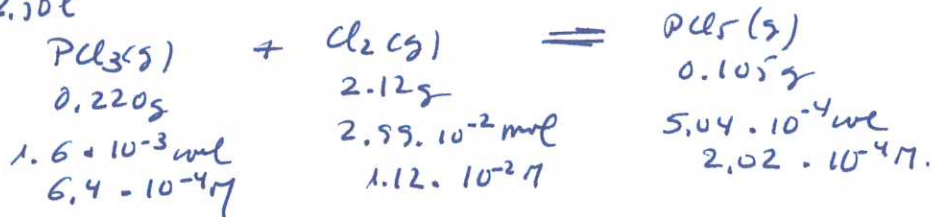 PCl₃(g) + Cl₂(g) = PCl₅(g)
0.220g 2.12g 0.105g
1.6 · 10⁻³ mol 2.99 · 10⁻² mol 5.04 · 10⁻⁴ mol
6.4 · 10⁻⁴ M 1.12 · 10⁻² M 2.02 · 10⁻⁴ M.